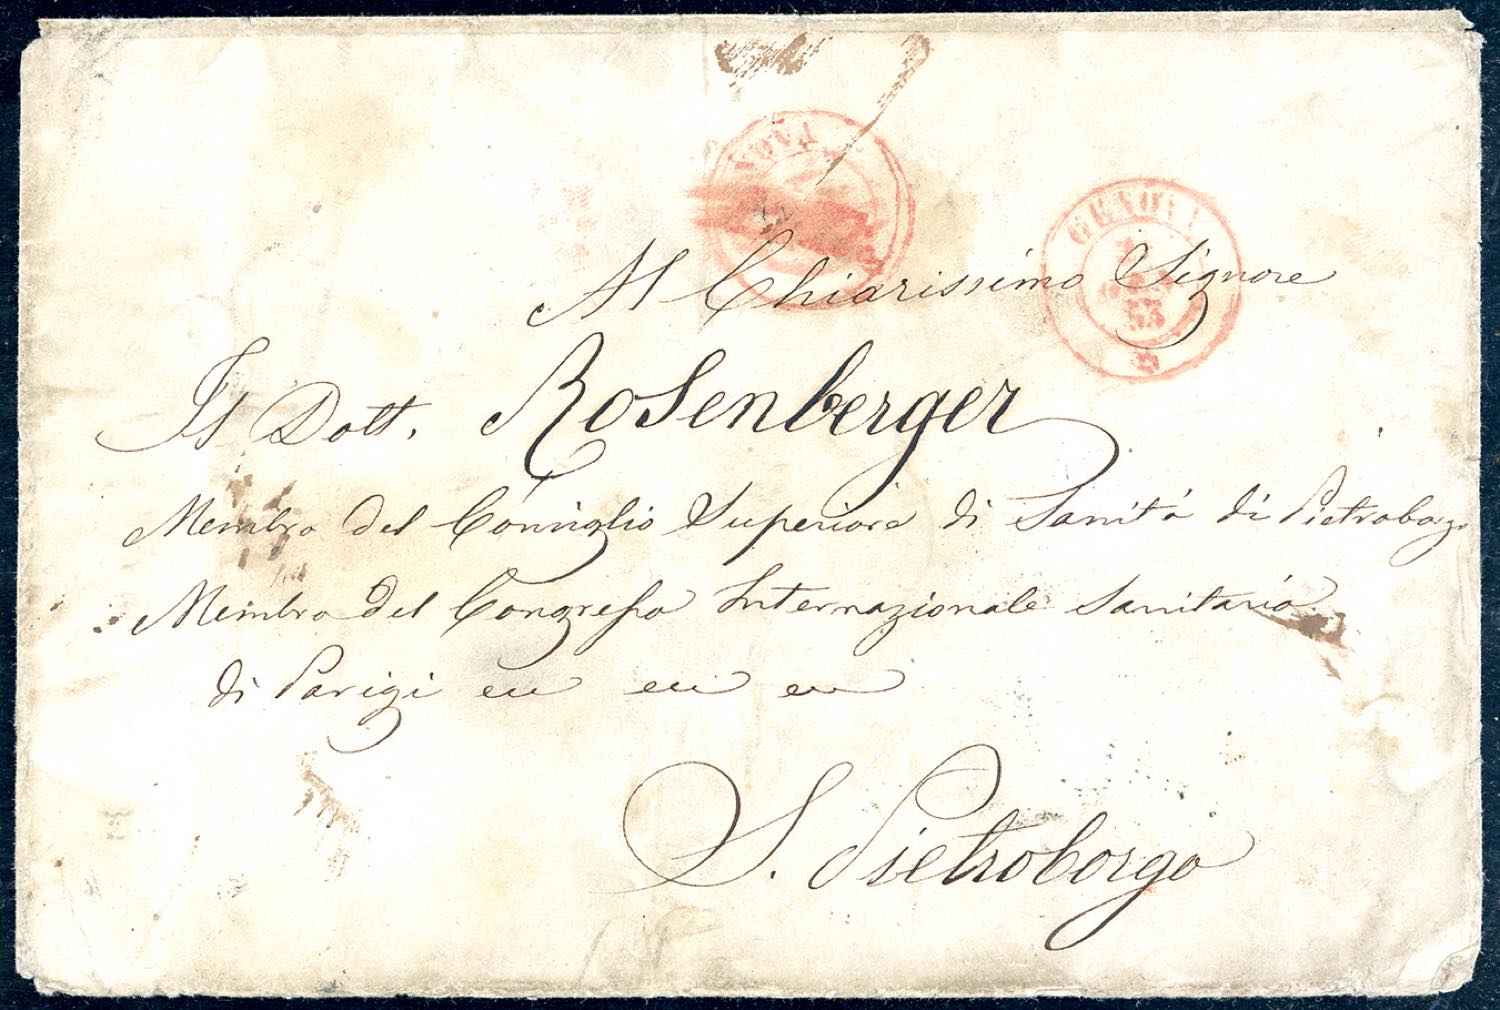 NOVA
GENOVA
53
Al Chiarissimo Signore
Il Dott. Rosenberger
Membro del Consiglio Superiore di Sanità di Pietroborgo
Membro del Congresso Internazionale Sanitario
di Parigi
S. Pietroborgo